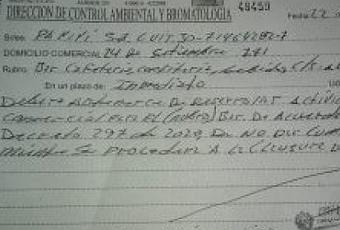 DIRECCION DE CONTROL AMBIENTAL Y BROMATOLOGIA
49459
Fecha 22
Sres. S.A. CUIT 30-71464282-7
DOMICILIO COMERCIAL 24 de Setiembre 271
Rubro Bar Cafeteria, confiteria, bebidas c/s
En un plazo de: Inmediato
Debera Abstenerse de Desarrollar Activi
Comercial para el (rubro) Bar. De Acuerdo
Decreto 297 de 2020, De No Dar Cum
Mismo Se procedera A la Clausura